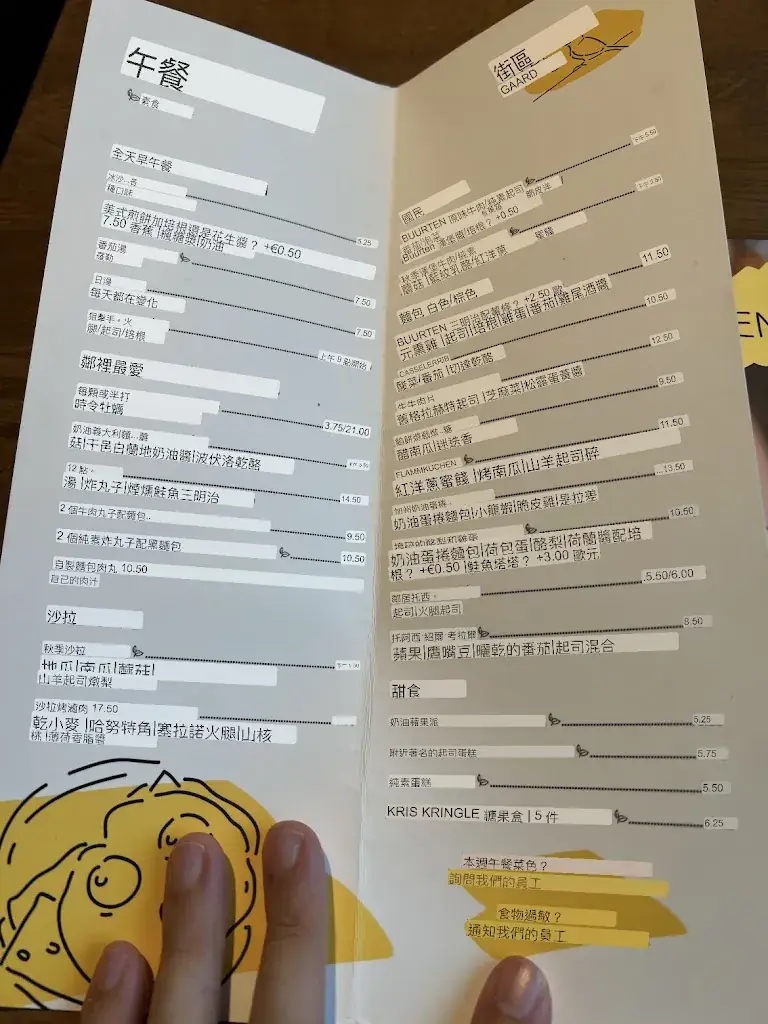 午餐
素食
全天早午餐
冰沙...各
種口味 5.25
美式煎餅加培根還是花生醬？ +€0.50
7.50 香蕉 |楓糖漿|奶油
番茄湯
羅勒 7.50
日湯
每天都在變化 7.50
狙擊手。火
腿/起司/培根
鄰裡最愛
每顆或半打
時令牡蠣 3.75/21.00
奶油義大利麵...蘑
菇|干邑白蘭地奶油醬|波伏洛乾酪
12 點。
湯 |炸丸子|煙燻鮭魚三明治 14.50
2 個牛肉丸子配麵包.. 9.50
2 個純素炸丸子配黑麵包 10.50
自製麵包肉丸 10.50
自己的肉汁
沙拉
秋季沙拉
地瓜|南瓜|蘑菇|
山羊起司燉梨
沙拉烤滷肉 17.50
乾小麥 |哈努特角|塞拉諾火腿|山核
桃 |薄荷香脂醬
街區
GAARD
國民
BUURTEN 風味牛肉/純素起司
Buurten 漢堡醬/培根？ +0.50
秋季漢堡牛肉/純素
蘑菇 |藍紋乳酪|紅洋蔥
麵包 白色/棕色 11.50
BUURTEN 三明治配薯條？ +2.50 歐
元熏雞 |起司|培根|雞蛋|番茄|雞尾酒醬
10.50
CASSELERRIB
酸菜/番茄 |切達乾酪 12.50
生牛肉片
舊格拉赫特起司 |芝麻菜|松露蛋黃醬 9.50
醋南瓜|迷迭香 11.50
FLAMMKUCHEN
紅洋蔥蜜餞 |烤南瓜|山羊起司碎 ...13.50
奶油蛋捲麵包|小龍蝦|脆皮雞|是拉差 10.50
奶油蛋捲麵包|荷包蛋|酪梨|荷蘭醬配培
根？ +€0.50 |鮭魚塔塔？ +3.00 歐元
鄰居托西。 .5.50/6.00
起司|火腿起司
托阿西·紹爾·考拉爾 8.50
蘋果|鷹嘴豆|曬乾的番茄|起司混合
甜食
奶油蘋果派 5.25
附近著名的起司蛋糕 5.75
純素蛋糕 5.50
KRIS KRINGLE 糖果盒 | 5 件 6.25
本週午餐菜色？
詢問我們的員工
食物過敏？
通知我們的員工
EN